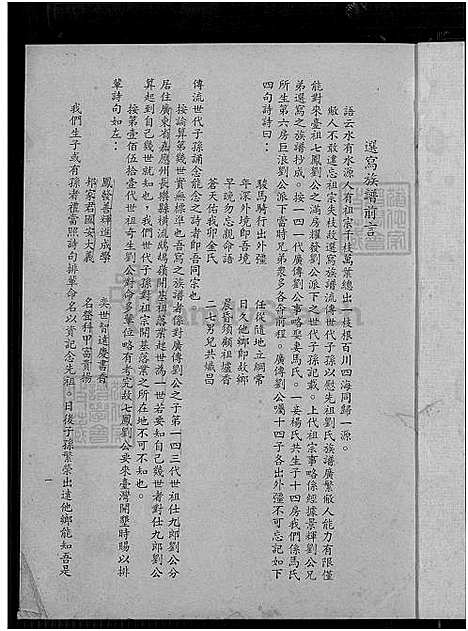 選寫族譜前言
語云水有水源人有祖宗千枝萬葉總出一枝根百川四海同歸一源。
敝人不敢遺忘祖宗失枝故選寫族譜流傳世代子孫以慰先祖劉氏族譜廣繁敝人能力有限僅
能對來臺祖七鳳劉公之滿房耀發劉公派下之世代子孫記載。上代祖宗事略係經據景輝劉公兄
弟選寫之族譜抄成。按一四一代廣傳劉公事略娶妻馬氏。一妾楊氏共生子十四房我們係馬氏
所生第六房巨浪劉公派下當時兄弟衆多各奔前程。廣傳劉公囑十四子各出外疆不可忘記如下
四句詩詩曰：
駿馬騎行出外疆　任從隨地立綱常
年深外境即吾境　日久他鄉即故鄉
早晚勿忘親命語　晨昏須顧祖爐香
蒼天佑我卯金氏　二七男兒共熾昌
傳流世代子孫誦念能念之詩者即吾同宗也
按論算第幾世實無標準也吾寫之族譜者係對廣傳劉公之子第一四三代世祖仕九郎劉公分
居住廣東省嘉應州長樂縣橫流鴣塢嶺開基祖落業起世為一世若要知自己幾世者對仕九郎劉公
算起到自己幾世就知也，我們世代子孫對祖宗開基落業之所在地不可不知也。
按第壹佰伍拾壹代世祖奇生劉公對命多輩位略有考究故七鳳劉公要來臺灣開墾時賜以排
輩詩句如左：
鳳發善輝進成學　奕世智達慶書香
邦家君國安大義　名登科甲富貴揚
我們生子或有孫者禮當照詩句排輩命名以資記念先祖。日後子孫繁榮出達他鄉能知吾是
一